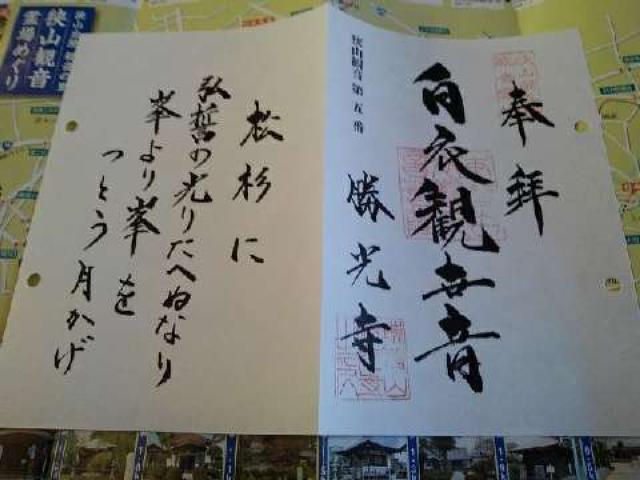 奉拝
狭山観音第五番
白衣観世音
勝光寺
松杉に
弘誓の光りたへぬなり
峯より峯を
つとう月かげ
狭山観音
霊場めぐり